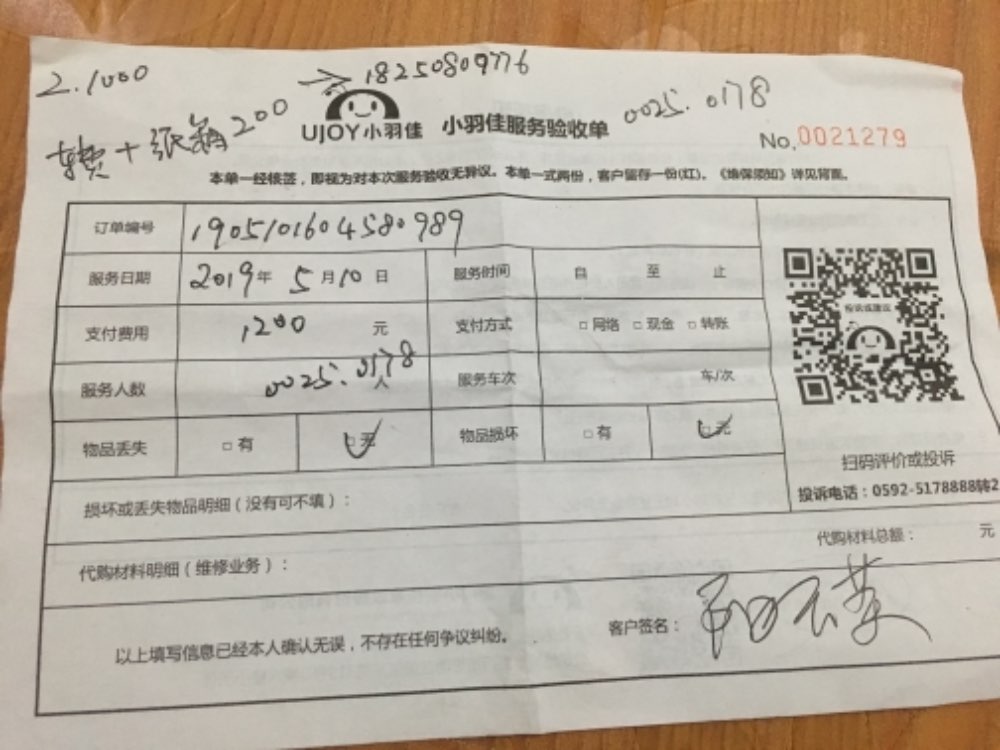 2.1000
18250809776
车费+纸箱200
UJOY小羽佳 小羽佳服务验收单
0025.0178
No.0021279
本单一经核签，即视为对本次服务验收无异议。本单一式两份，客户留存一份(红)。《维保须知》详见背面。
订单编号 1905101604580989
服务日期 2019年 5月10日 服务时间 自 至 止
支付费用 1200 元 支付方式 □网络 □现金 □转账
服务人数 0025.0178 人 服务车次 车/次
物品丢失 □有 □无 物品损坏 □有 □无
投诉或建议
扫码评价或投诉
投诉电话：0592-5178888转2
损坏或丢失物品明细（没有可不填）：
代购材料明细（维修业务）： 代购材料总额： 元
以上填写信息已经本人确认无误，不存在任何争议纠纷。 客户签名：